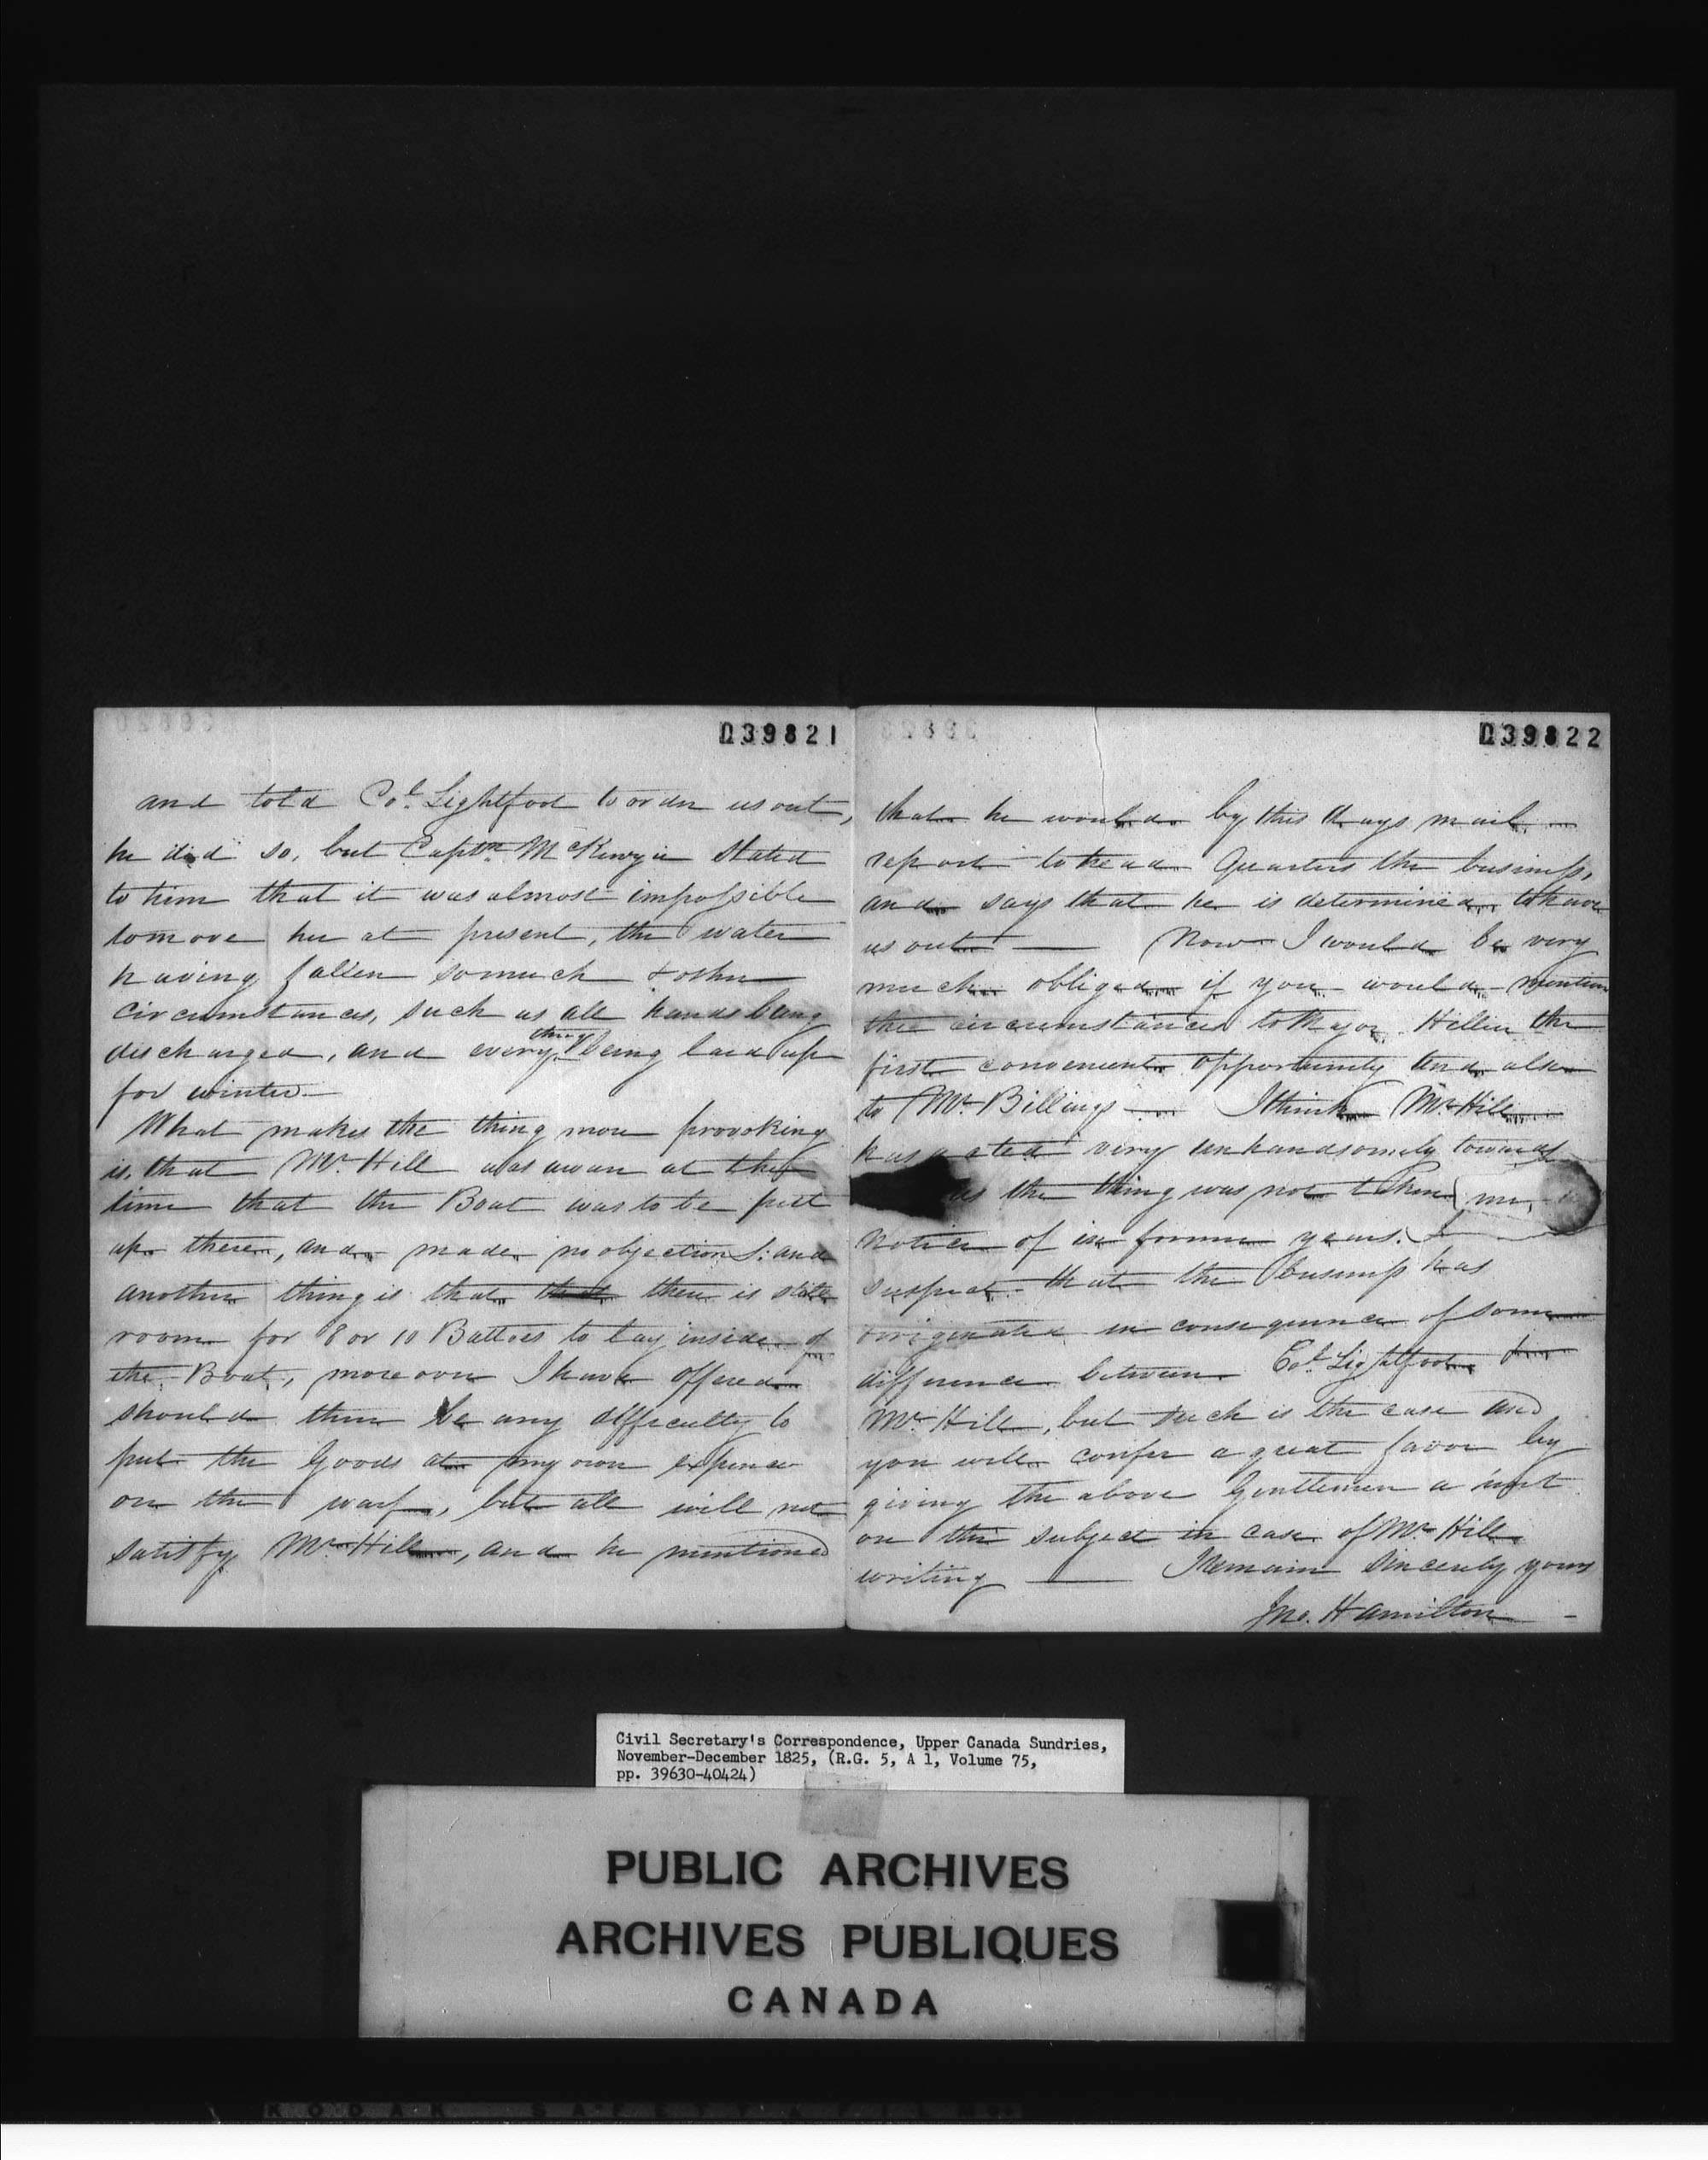 039821
and told Col. Lightfoot to order us out,
he did so, but Captn. McKenzie stated
to him that it was almost impossible
to move her at present, the water
having fallen so much & other
circumstances, such as all hands being
discharged, and every thing being laid up
for winter—
What makes the thing more provoking
is, that Mr. Hill was aware at the
time that the Boat was to be put
up there, and made no objections: and
another thing is that that there is still
room for 8 or 10 Battoes to lay inside of
the Boat, more over I have offered
should there be any difficulty to
put the Goods at my own expence
on the warf, but all will not
satisfy Mr. Hill, and he mentioned
039822
that he would by this days mail
report to head Quarters the business,
and says that he is determined to have
us out — Now I would be very
much obliged if you would mention
the circumstances to Major Hillier the
first convenient opportunity and also
to Mr. Billings — I think Mr. Hill
has acted very unhandsomely towards
me,
as the thing was not taken
notice of in former years. I
suspect that the business has
originated in consequence of some
difference between Col. Lightfoot &
Mr. Hill, but such is the case and
you will confer a great favor by
giving the above Gentlemen a hint
on this subject in case of Mr. Hill
writing — I remain sincerely yours
Jno. Hamilton
Civil Secretary's Correspondence, Upper Canada Sundries,
November-December 1825, (R.G. 5, A 1, Volume 75,
pp. 39630-40424)
PUBLIC ARCHIVES
ARCHIVES PUBLIQUES
CANADA
KODAK SAFETY FILM